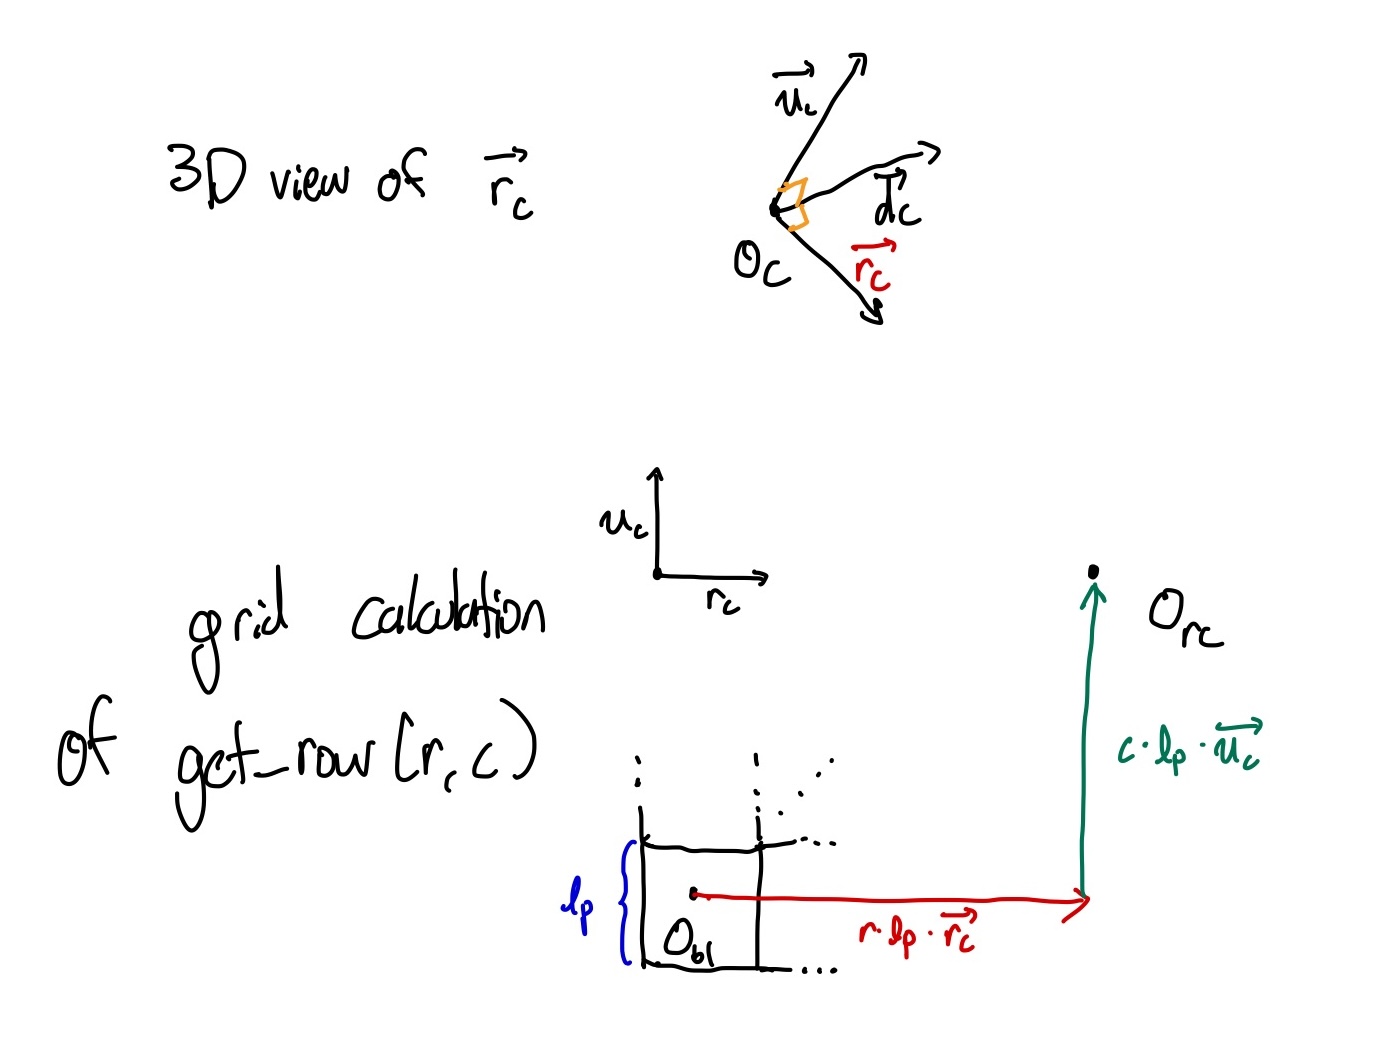 3D view of r_c
u_c
d_c
O_c
r_c
u_c
r_c
grid calculation
of get_row(r,c)
O_rc
c·l_p·u_c
l_p
O_bl
r·l_p·r_c